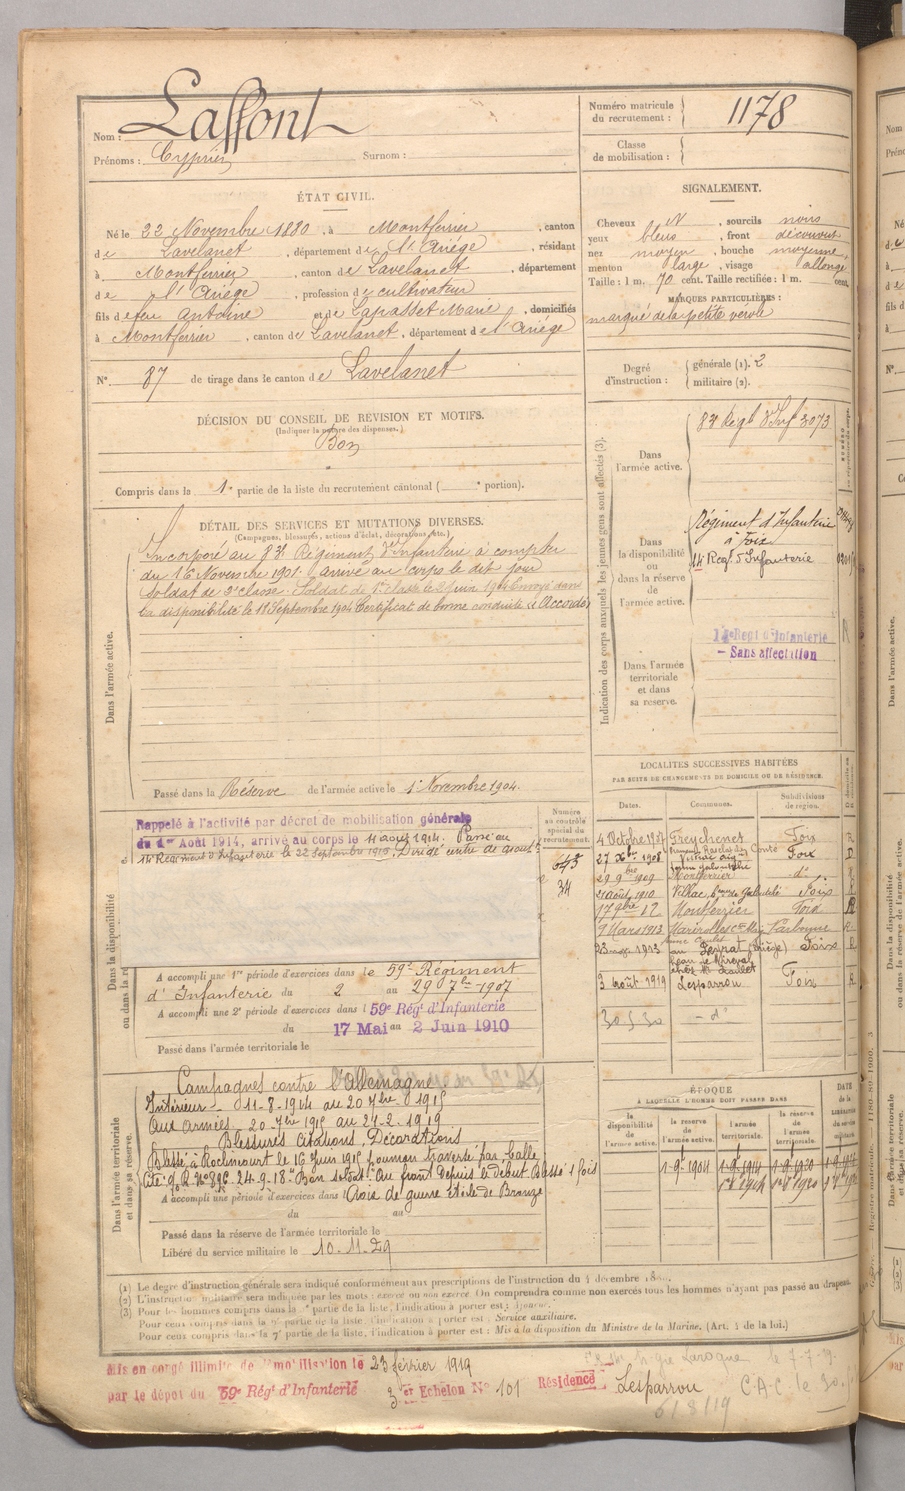 Nom : Laffont
Prénoms : Cyprien Surnom :
Numéro matricule du recrutement : 1178
Classe de mobilisation :
ÉTAT CIVIL.
Né le 22 Novembre 1880, à Montferrier, canton
de Lavelanet, département de l'Ariége, résidant
à Montferrier, canton de Lavelanet, département
de l'Ariége, profession de cultivateur
fils de feu Antoine et de Lapasset Marie, domiciliés
à Montferrier, canton de Lavelanet, département de l'Ariége
N° 87 de tirage dans le canton de Lavelanet
SIGNALEMENT.
Cheveux N, sourcils noirs
yeux bleus, front découvert
nez moyen, bouche moyenne
menton large, visage allongé
Taille : 1 m. 70 cent. Taille rectifiée : 1 m. cent.
MARQUES PARTICULIÈRES :
marqué de la petite vérole
Degré d'instruction : générale (1). 2
militaire (2).
DÉCISION DU CONSEIL DE REVISION ET MOTIFS.
(Indiquer la nature des dispenses.)
Bon
Compris dans la 1e partie de la liste du recrutement cantonal ( e portion).
DÉTAIL DES SERVICES ET MUTATIONS DIVERSES.
(Campagnes, blessures, actions d'éclat, décorations, etc.)
Dans l'armée active.
Incorporé au 83e Régiment d'Infanterie à compter
du 16 Novembre 1901. arrivé au corps le dit jour
Soldat de 2e classe. Soldat de 1re classe le 2 juin 1904 Envoyé dans
la disponibilité le 18 Septembre 1904 Certificat de bonne conduite Accordé
Passé dans la Réserve de l'armée active le 1er Novembre 1904.
Indication des corps auxquels les jeunes gens sont affectés (3).
Dans l'armée active.
83e Régt d'Inf 3073
Dans la disponibilité ou dans la réserve de l'armée active.
Régiment d'Infanterie
à Foix
14 Reg d'Infanterie
Dans l'armée territoriale et dans sa réserve.
14e Regt d'Infanterie
- Sans affectation
LOCALITES SUCCESSIVES HABITÉES
PAR SUITE DE CHANGEMENTS DE DOMICILE OU DE RÉSIDENCE.
Dates. Communes. Subdivisions de région.
4 Octobre 1907 Freychenet Foix
27 Xbre 1908 Foix
29 9bre 1909 Montferrier do
21 août 1910 Foix
17 9bre 12 Montferrier Foix
9 Mars 1913 Narbonne
1913 Foix
3 août 1919 Lesparrou Foix
30 5 30 - do
Dans la disponibilité
Rappelé à l'activité par décret de mobilisation générale
du 1er Août 1914, arrivé au corps le 11 août 1914. Passé au
14 Régiment d'Infanterie le 22 septembre 1915.
Numéro au contrôle spécial du recrutement.
34
A accompli une 1re période d'exercices dans le 59e Régiment
d'Infanterie du 2 au 29 7bre 1907
A accompli une 2e période d'exercices dans l 59e Régt d'Infanterie
du 17 Mai au 2 Juin 1910
Passé dans l'armée territoriale le
Dans l'armée territoriale et dans sa réserve.
Campagnes contre l'Allemagne
Intérieur - 11-8-1914 au 20 7bre 1915
Aux armées - 20 7bre 1915 au 2-2-1919
Blessures, Citations, Décorations
Blessé à Roclincourt le 16 Juin 1915 poumon traversé par balle
Cité 24-9-18 "Bon soldat. Au front depuis le début blessé 1 fois
A accompli une période d'exercices dans l Croix de guerre Etoile de Bronze
du au
Passé dans la réserve de l'armée territoriale le
Libéré du service militaire le 10-11-29
ÉPOQUE
A LAQUELLE L'HOMME DOIT PASSER DANS
la disponibilité de l'armée active. la réserve de l'armée active. l'armée territoriale. la réserve de l'armée territoriale. DATE de la LIBÉRATION du service militaire.
(1) Le degré d'instruction générale sera indiqué conformément aux prescriptions de l'instruction du 4 décembre
(2) L'instruction militaire sera indiquée par les mots : exercé ou non exercé On comprendra comme non exercés tous les hommes n'ayant pas passé au drapeau.
(3) Pour les hommes compris dans la 1e partie de la liste, l'indication à porter est :
Pour ceux compris dans la partie de la liste, l'indication à porter est : Service auxiliaire.
Pour ceux compris dans la 7e partie de la liste, l'indication à porter est : Mis à la disposition du Ministre de la Marine. (Art. 4 de la loi.)
Mis en congé illimité de démobilisation le 23 février 1919
par le dépôt du 59e Régt d'Infanterie 3 er Echelon N° 101 Résidence Lesparrou
6/8/19